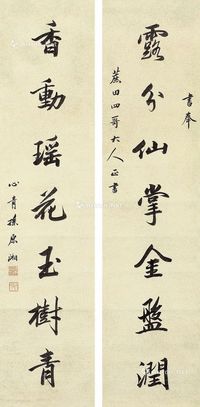 書奉
露分仙掌金盤潤
蔗田四哥大人正書
香動瑶花玉樹青
心青孫原湘